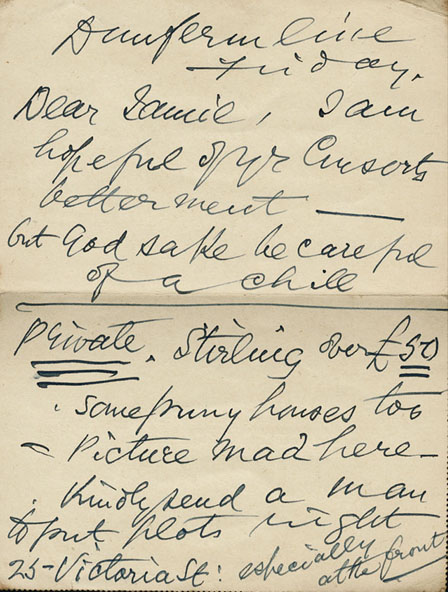 Dunfermline
Friday.
Dear Jamie, I am
hopeful of yr Consorts
betterment —
but God sake be careful
of a chill
Private. Stirling over £50
. Some funny houses too
- Picture mad here -
. Kindly send a man
to put plots right
25 - Victoria St: especially
at the front